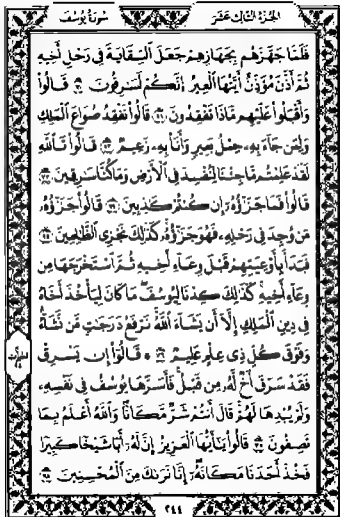 سورة يوسف
الجزء الثالث عشر
فَلَمَّا جَهَّزَهُم بِجَهَازِهِمْ جَعَلَ السِّقَايَةَ فِي رَحْلِ أَخِيهِ
ثُمَّ أَذَّنَ مُؤَذِّنٌ أَيَّتُهَا الْعِيرُ إِنَّكُمْ لَسَارِقُونَ ٧٠ قَالُوا
وَأَقْبَلُوا عَلَيْهِم مَّاذَا تَفْقِدُونَ ٧١ قَالُوا نَفْقِدُ صُوَاعَ الْمَلِكِ
وَلِمَن جَاءَ بِهِ حِمْلُ بَعِيرٍ وَأَنَا بِهِ زَعِيمٌ ٧٢ قَالُوا تَاللَّهِ
لَقَدْ عَلِمْتُم مَّا جِئْنَا لِنُفْسِدَ فِي الْأَرْضِ وَمَا كُنَّا سَارِقِينَ ٧٣
قَالُوا فَمَا جَزَاؤُهُ إِن كُنتُمْ كَاذِبِينَ ٧٤ قَالُوا جَزَاؤُهُ
مَن وُجِدَ فِي رَحْلِهِ فَهُوَ جَزَاؤُهُ كَذَلِكَ نَجْزِي الظَّالِمِينَ ٧٥
فَبَدَأَ بِأَوْعِيَتِهِمْ قَبْلَ وِعَاءِ أَخِيهِ ثُمَّ اسْتَخْرَجَهَا مِن
وِعَاءِ أَخِيهِ كَذَلِكَ كِدْنَا لِيُوسُفَ مَا كَانَ لِيَأْخُذَ أَخَاهُ
فِي دِينِ الْمَلِكِ إِلَّا أَن يَشَاءَ اللَّهُ نَرْفَعُ دَرَجَاتٍ مَّن نَّشَاءُ
وَفَوْقَ كُلِّ ذِي عِلْمٍ عَلِيمٌ ٧٦ ۞ قَالُوا إِن يَسْرِقْ
فَقَدْ سَرَقَ أَخٌ لَّهُ مِن قَبْلُ فَأَسَرَّهَا يُوسُفُ فِي نَفْسِهِ
وَلَمْ يُبْدِهَا لَهُمْ قَالَ أَنتُمْ شَرٌّ مَّكَانًا وَاللَّهُ أَعْلَمُ بِمَا
تَصِفُونَ ٧٧ قَالُوا يَا أَيُّهَا الْعَزِيزُ إِنَّ لَهُ أَبًا شَيْخًا كَبِيرًا
فَخُذْ أَحَدَنَا مَكَانَهُ إِنَّا نَرَاكَ مِنَ الْمُحْسِنِينَ ٧٨
٢٤٤